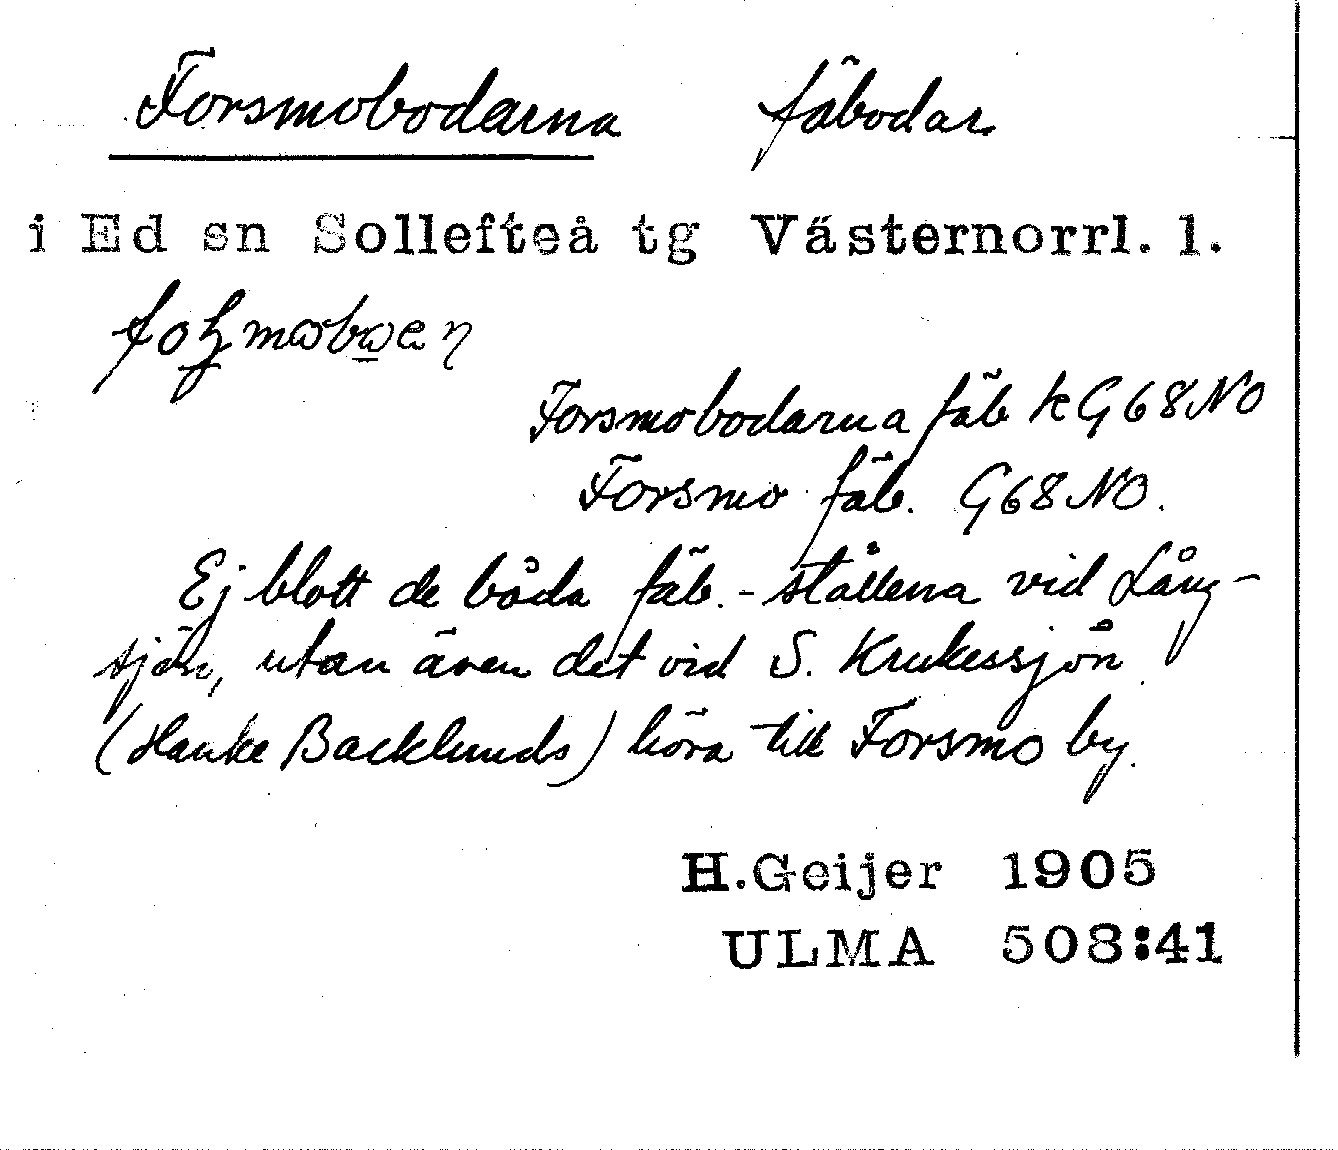 Forsmobodarna fäbodar
i Ed sn Sollefteå tg Västernorrl. l.
Forsmobodarna fäb k G68NO
Forsmo fäb. G68NO.
Ej blott de båda fäb.-ställena vid Lång-
sjön, utan även det vid S. Krukessjön
(Hanke Backlunds) höra till Forsmo by.
H.Geijer 1905
ULMA 508:41